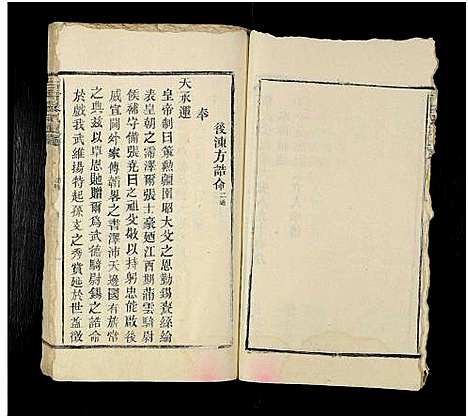 後湳方誥命二通
奉
天承運
皇帝制曰策勲疆圉昭大父之恩勤錫賚絲綸
表皇朝之霈澤爾張士豪廼江西期蒲雲騎尉
候補守備張堯日之祖父敬以持躬忠能啟後
威宣閫外家傳韜畧之書澤沛天邊國有旂常
之典兹以覃恩貤贈爾為武德騎尉錫之誥命
於戲我武維揚特起孫支之秀賞延於世益徵